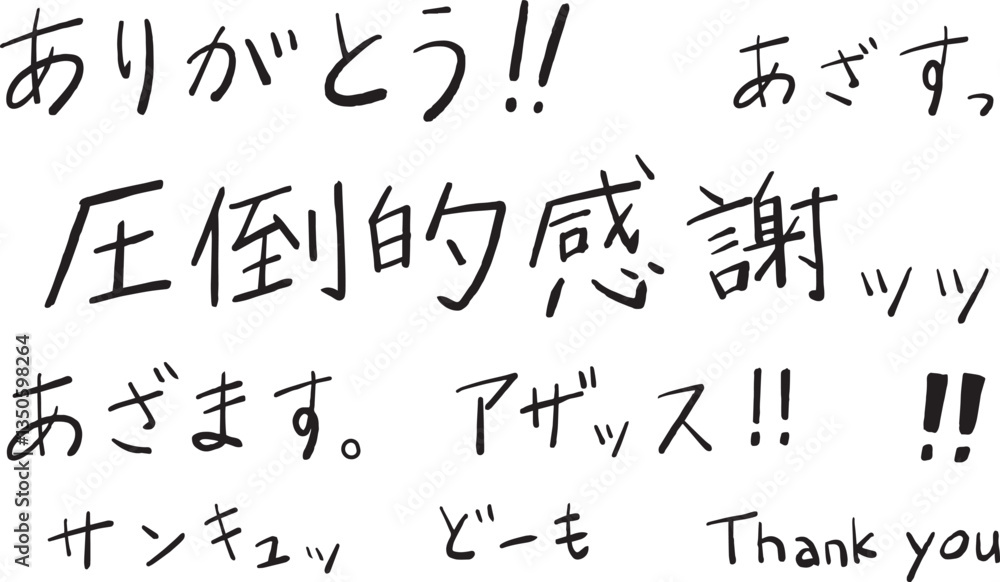 ありがとう!! あざすっ
圧倒的感謝ッッ
あざます。 アザッス!! !!
サンキュッ どーも Thank you
Adobe Stock | #1350598264